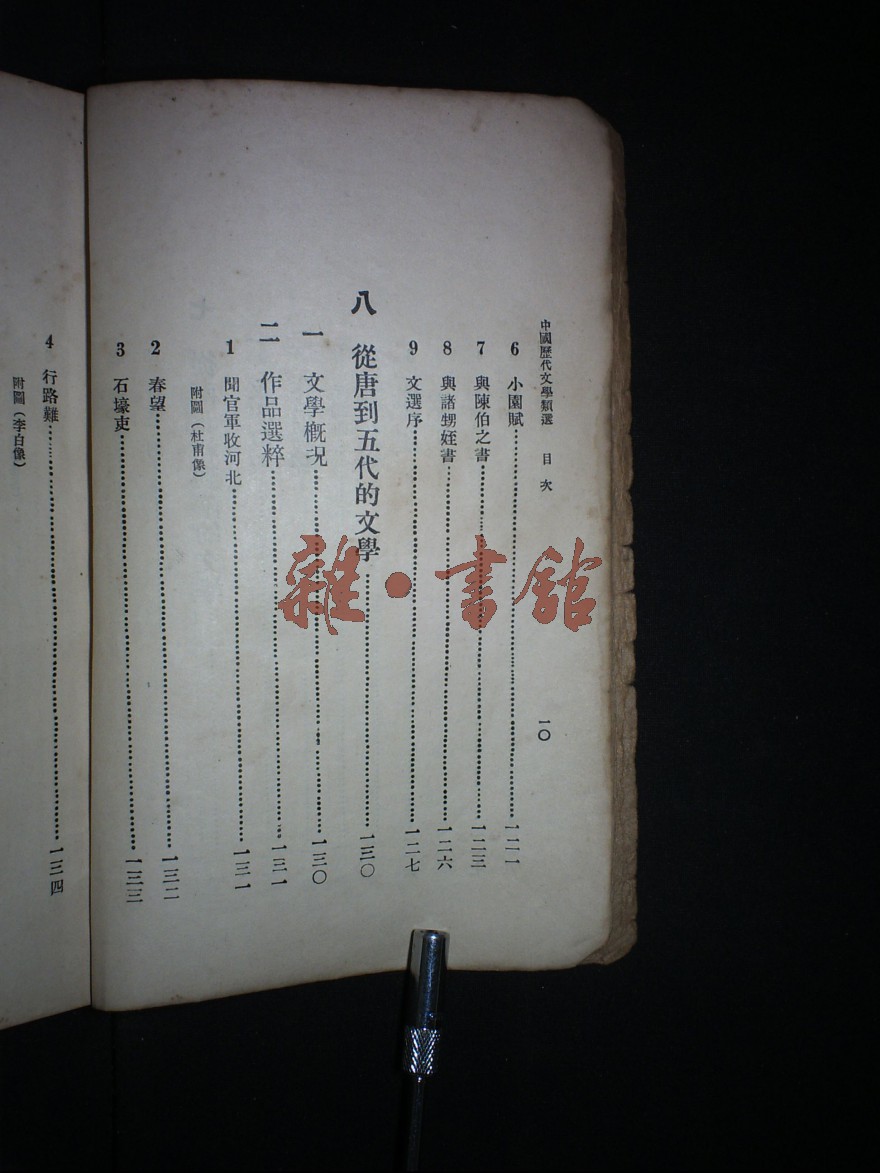 中國歷代文學類選 目次 一〇
6 小園賦 一二一
7 與陳伯之書 一二三
8 與諸甥姪書 一二六
9 文選序 一二七
八 從唐到五代的文學 一三〇
一 文學概況 一三〇
二 作品選粹 一三一
1 聞官軍收河北 一三一
附圖(杜甫像)
2 春望 一三二
3 石壕吏 一三三
4 行路難 一三四
附圖(李白像)
雜·書館